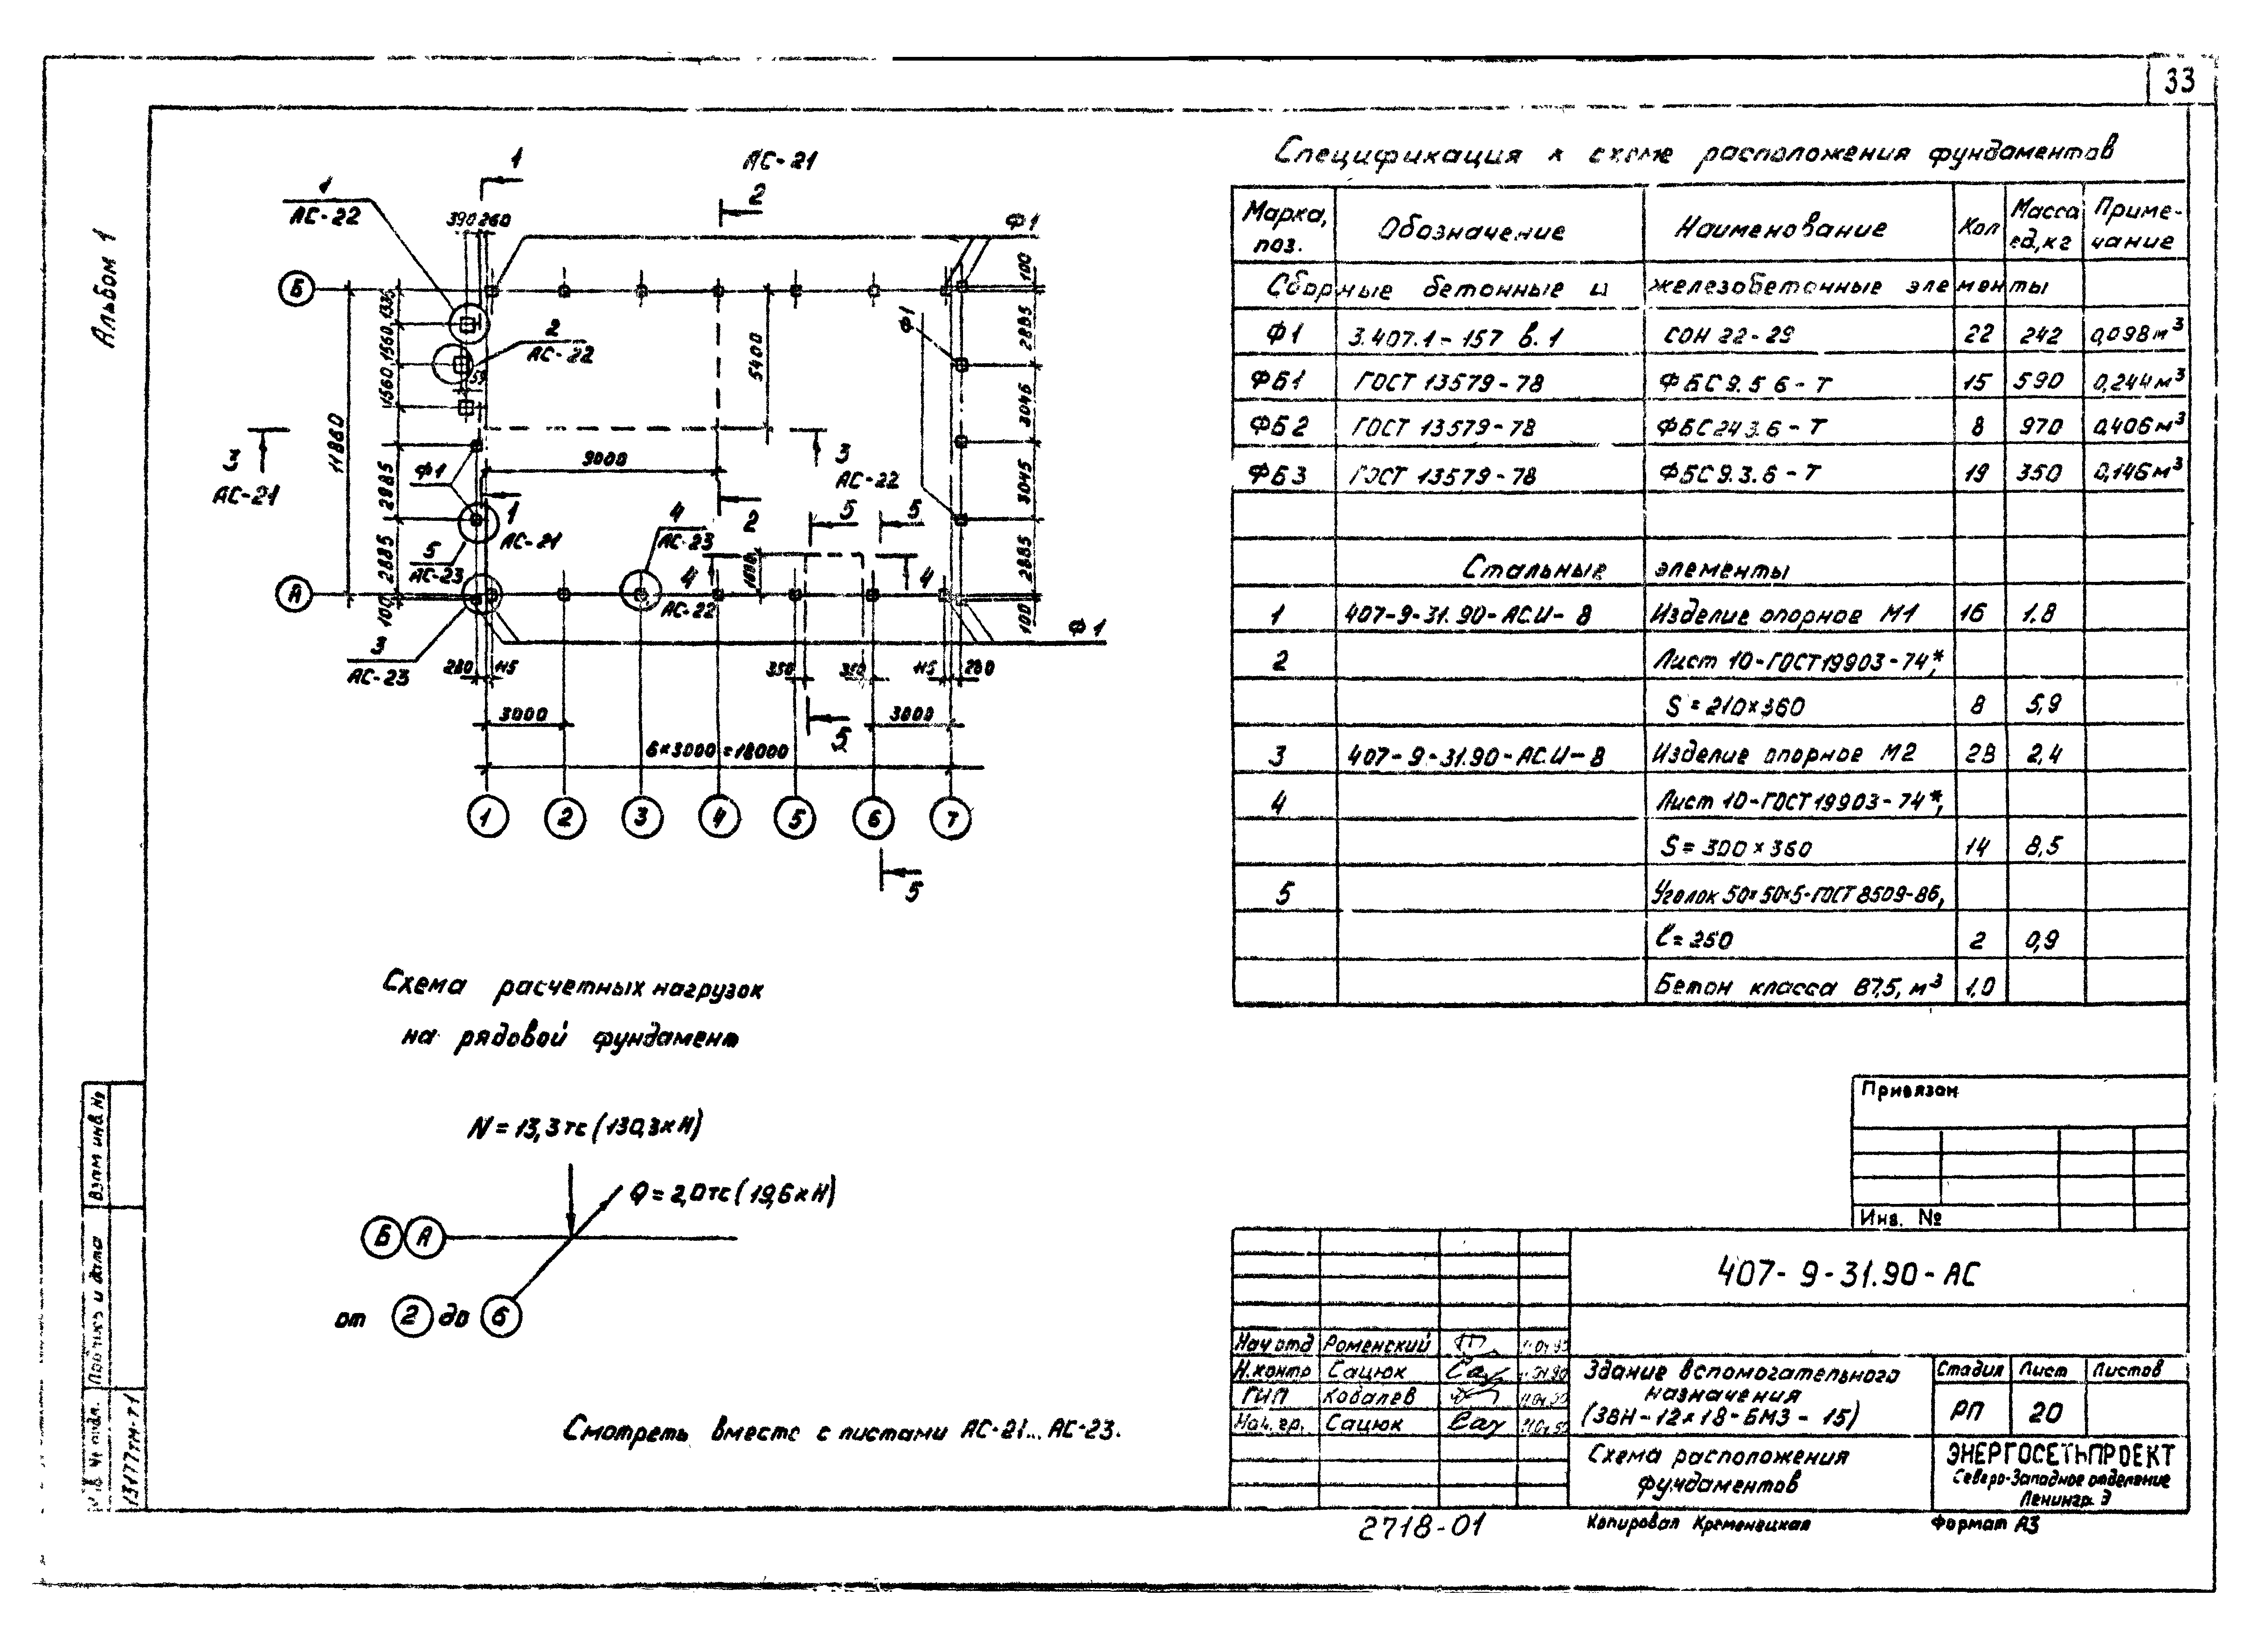 33
Альбом 1
АС-21
1
1
АС-22
2
390 260
Ф1
Б
100
1335
1560
1560
2
АС-22
55
5400
Ф1
2885
3045
3045
2885
100
11860
2885
2885
100
3
АС-21
Ф1
9000
3
АС-22
1
АС-21
2
4
АС-23
5
5
5
АС-23
4
АС-22
1400
4
А
Ф1
3
АС-23
280 115
350
350
115 280
3000
3000
5
6×3000=18000
1 2 3 4 5 6 7
5
Спецификация к схеме расположения фундаментов
Марка, поз. Обозначение Наименование Кол Масса ед,кг Приме-чание
Сборные бетонные и железобетонные элементы
Ф1 3.407.1-157 в.1 СОН 22-29 22 242 0,098м³
ФБ1 ГОСТ 13579-78 ФБС9.5 6-Т 15 590 0,244м³
ФБ2 ГОСТ 13579-78 ФБС24 3.6-Т 8 970 0,406м³
ФБ3 ГОСТ 13579-78 ФБС9.3.6-Т 19 350 0,146м³
Стальные элементы
1 407-9-31.90-АС.И-8 Изделие опорное М1 16 1.8
2 Лист 10-ГОСТ19903-74*,
S=210×360 8 5,9
3 407-9-31.90-АС.И-8 Изделие опорное М2 28 2,4
4 Лист 10-ГОСТ19903-74*,
S=300×360 14 8,5
5 Уголок 50×50×5-ГОСТ8509-86,
ℓ=250 2 0,9
Бетон класса В7,5, м³ 1,0
Схема расчетных нагрузок
на рядовой фундамент
N=13,3тс(130,3кН)
Q=2,0тс(19,6кН)
Б А
от 2 до 6
Смотреть вместе с листами АС-21...АС-23.
Привязан
Инв. №
407-9-31.90-АС
Нач отд Роменский
Н.контр Сацюк
ГИП Ковалев
Нач. гр. Сацюк
Здание вспомогательного
назначения
(ЗВН-12×18-БМЗ-15)
Стадия Лист Листов
РП 20
Схема расположения
фундаментов
ЭНЕРГОСЕТЬПРОЕКТ
Северо-Западное отделение
Ленингр. д
2718-01
Копировал Кременецкая
Формат А3
Взам инв. №
Подпись и дата
13177тм-т1